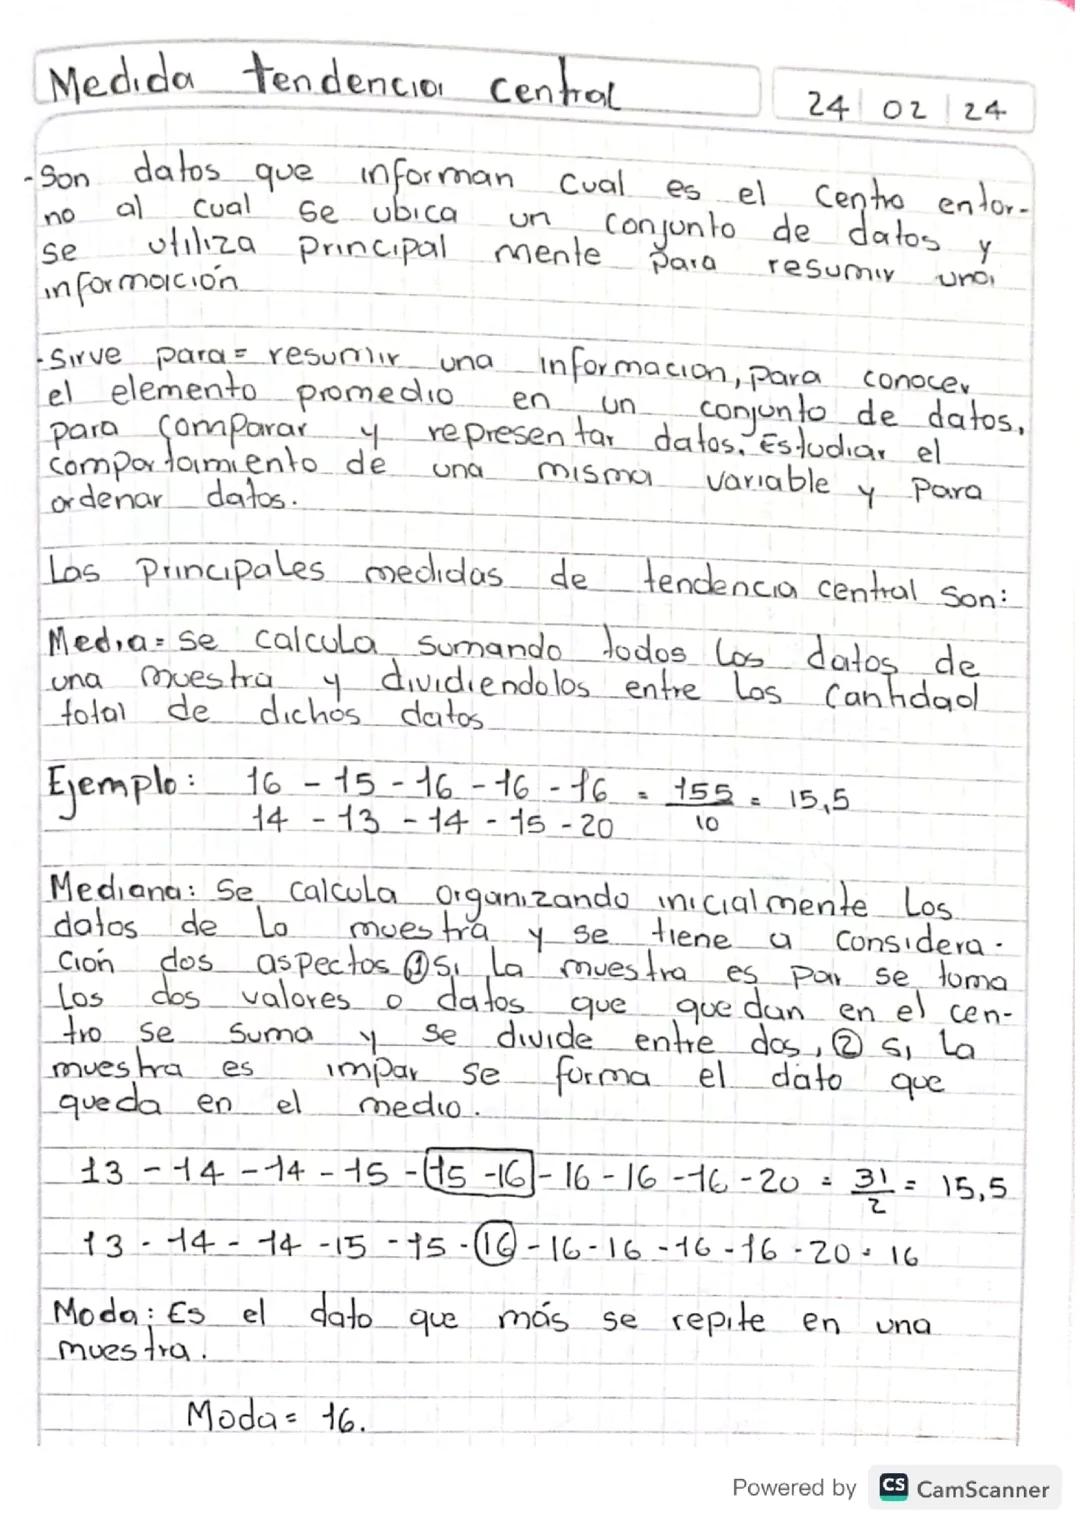 Medida tendencia central
24 02 24
-Son datos que informan cual es el centro entor-
no al cual se ubica un conjunto de datos y
se utiliza principal mente para resumir una
información
-Sirve para= resumir una informacion, para conocer
el elemento promedio en un conjunto de datos,
para comparar y representar datos. Estudiar el
comportamiento de una misma variable y para
ordenar datos.
Las principales medidas de tendencia central son:
Media= se calcula sumando todos los datos de
una muestra y dividiendolos entre los cantidad
total de dichos datos
Ejemplo: 16 - 15 - 16 - 16 - 16 = 155 = 15,5
14 - 13 - 14 - 15 - 20 10
Mediana: Se calcula organizando inicialmente los
datos de la muestra y se tiene a considera-
ción dos aspectos ① si la muestra es par se toma
los dos valores o datos que quedan en el cen-
tro se suma y se divide entre dos, ② si la
muestra es impar se forma el dato que
queda en el medio.
13 - 14 - 14 - 15 - 15 - 16 - 16 - 16 - 16 - 20 = 31 = 15,5
2
13 - 14 - 14 - 15 - 15 - 16 - 16 - 16 - 16 - 16 - 20 = 16
Moda: Es el dato que más se repite en una
muestra.
Moda= 16.
Powered by CS CamScanner